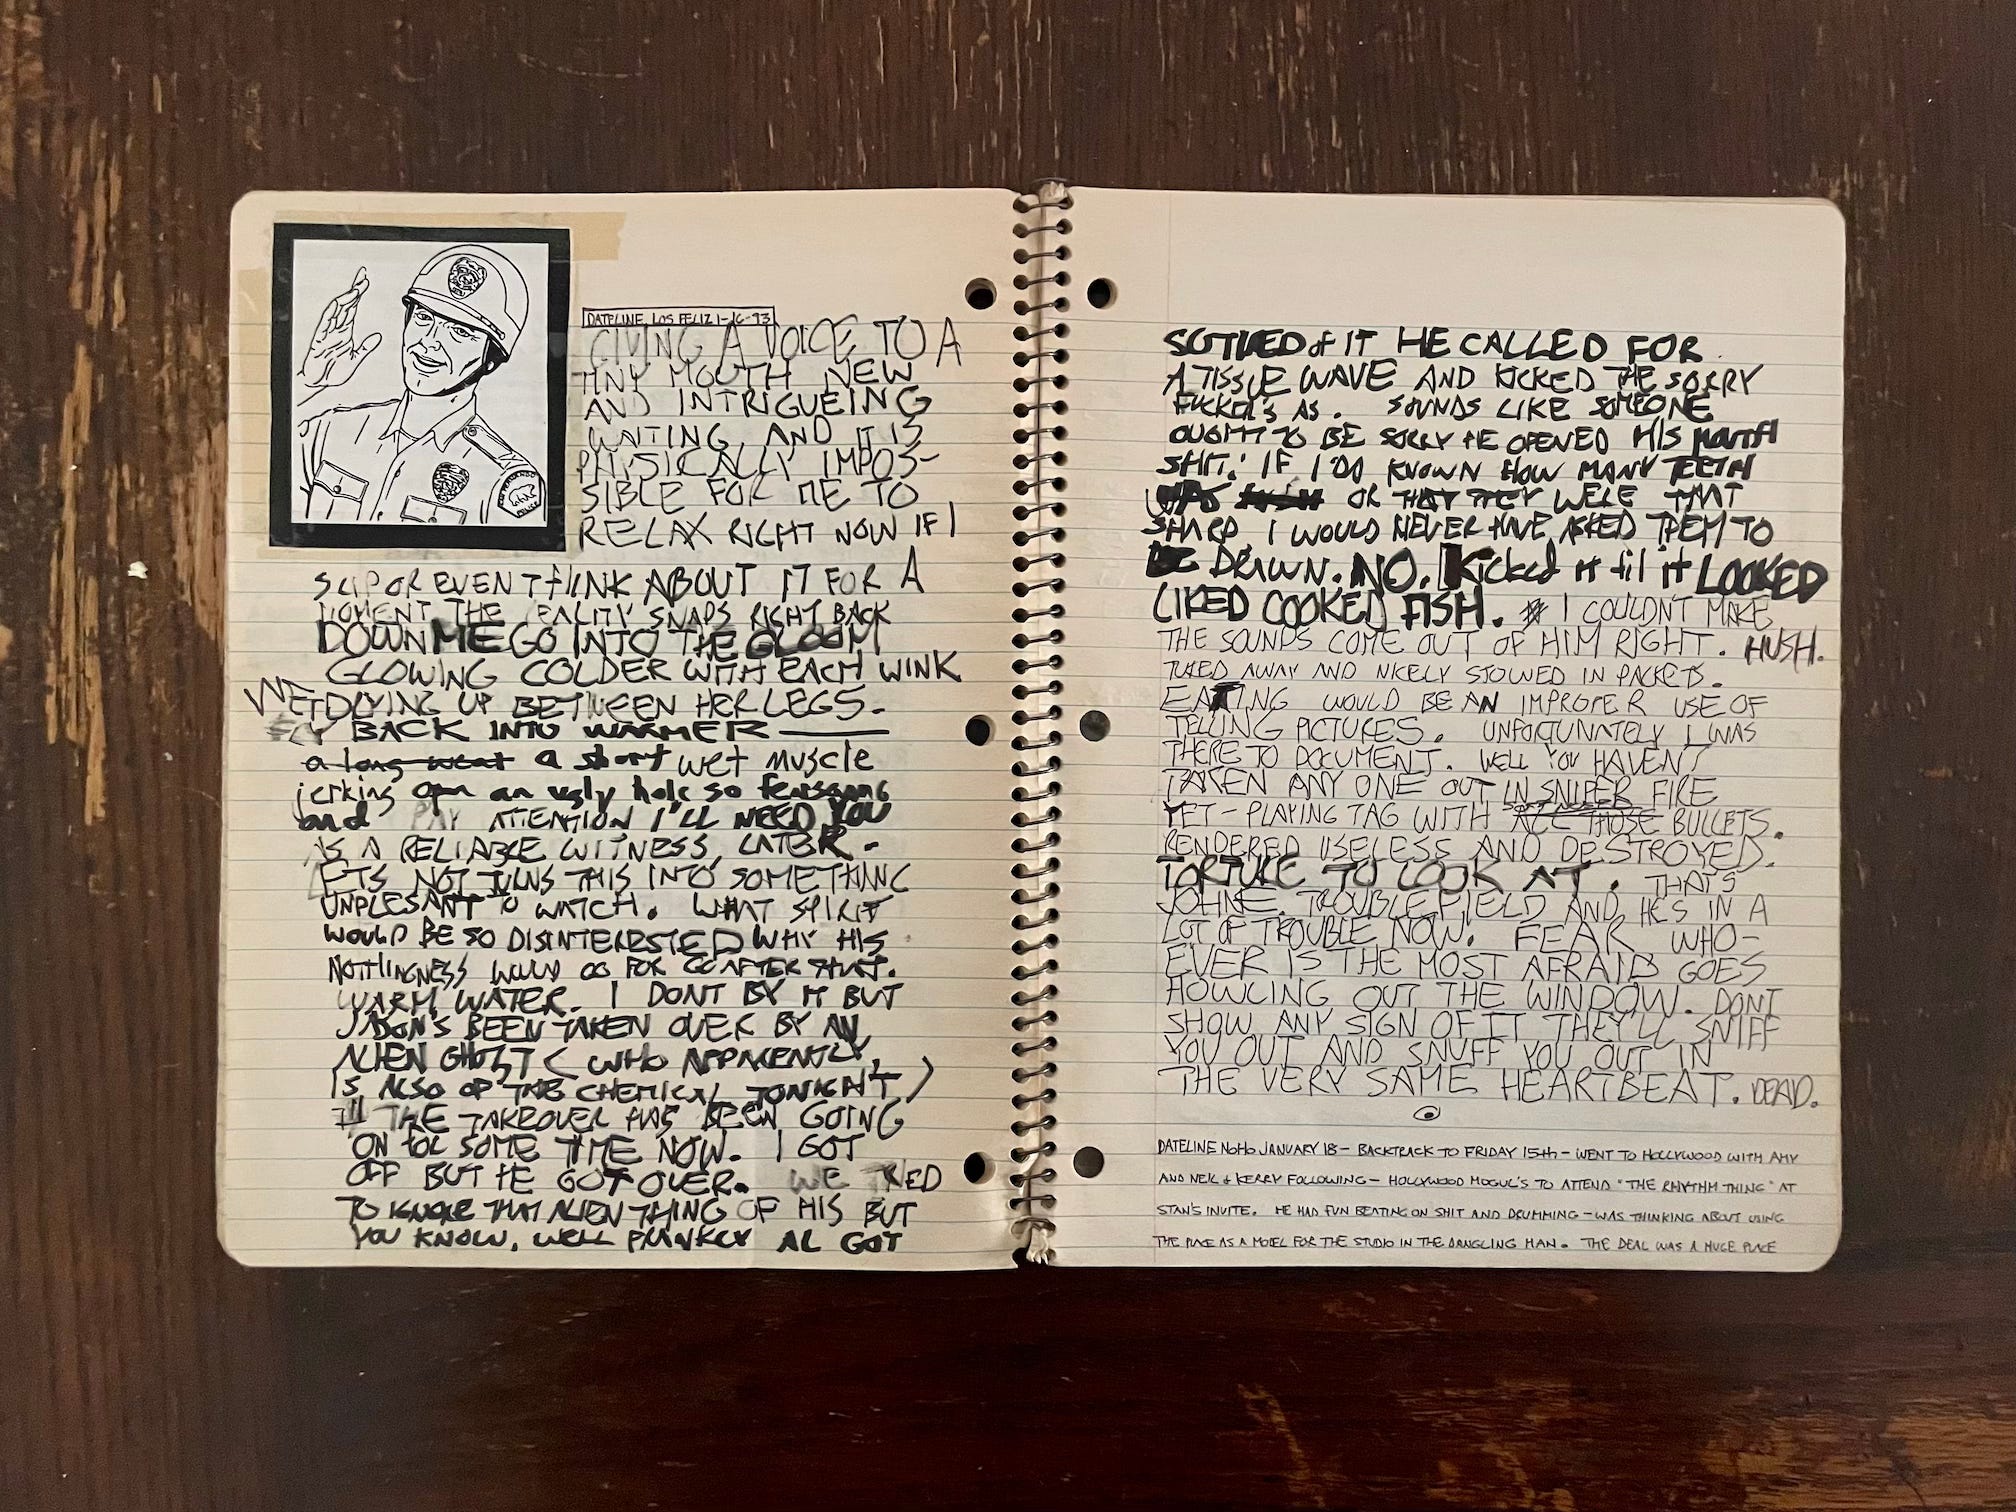 DATELINE, LOS FELIZ 1-16-93
GIVING A VOICE TO A
TINY MOUTH NEW
AND INTRIGUEING
WAITING, AND IT IS
PHYSICALLY IMPOS-
SIBLE FOR ME TO
RELAX RIGHT NOW IF I
SLIP OR EVEN THINK ABOUT IT FOR A
MOMENT THE REALITY SNAPS RIGHT BACK
DOWN ME GO INTO THE GLOOM
GLOWING COLDER WITH EACH WINK
WET DRYING UP BETWEEN HER LEGS.
BACK INTO WARMER
a long wear a short wet muscle
jerking open an ugly hole so fearsome
and PAY ATTENTION I'LL NEED YOU
AS A RELIABLE WITNESS, LATER.
LETS NOT TURNS THIS INTO SOMETHING
UNPLESANT TO WATCH. WHAT SPIRIT
WOULD BE SO DISINTERESTED WHY HIS
NOTHINGNESS WOULD GO FOR GO AFTER THAT.
WARM WATER. I DONT BY IT BUT
JASON'S BEEN TAKEN OVER BY AN
ALIEN GHOST (WHO APPARENTLY,
IS ALSO OF THE CHEMICAL TONIGHT)
THE TAKEOVER HAS BEEN GOING
ON FOR SOME TIME NOW. I GOT
OFF BUT HE GOT OVER. WE TRIED
TO IGNORE THAT ALIEN THING OF HIS BUT
YOU KNOW, WELL FRANKLY AL GOT
SO TIRED of IT HE CALLED FOR
A TISSUE WAVE AND KICKED THE SORRY
FUCKER'S AS. SOUNDS LIKE SOMEONE
OUGHT TO BE SORRY HE OPENED HIS MOUTH
SHIT! IF I'DD KNOWN HOW MANY TEETH
WAS OR THAT THEY WERE THAT
SHARP I WOULD NEVER HAVE ASKED THEM TO
BE DRAWN. NO. Kicked it til it LOOKED
LIKED COOKED FISH. I COULDNT MAKE
THE SOUNDS COME OUT OF HIM RIGHT. HUSH.
TUKED AWAY AND NICELY STOWED IN PACKETS.
EATING WOULD BE AN IMPROPER USE OF
TELLING PICTURES. UNFORTUNATELY I WAS
THERE TO DOCUMENT. WELL YOU HAVEN'T
TAKEN ANY ONE OUT IN SNIPER FIRE
YET - PLAYING TAG WITH ALL THOSE BULLETS.
RENDERED USELESS AND DESTROYED.
TORTURE TO LOOK AT. THAT'S
JOHNE. TROUBLEFIELD AND HE'S IN A
LOT OF TROUBLE NOW. FEAR WHO-
EVER IS THE MOST AFRAID GOES
HOWLING OUT THE WINDOW. DONT
SHOW ANY SIGN OF IT THEY'LL SNIFF
YOU OUT AND SNUFF YOU OUT IN
THE VERY SAME HEARTBEAT. DEAD.
DATELINE NoHo JANUARY 18 - BACKTRACK TO FRIDAY 15th - WENT TO HOLLYWOOD WITH AMY
AND NEIL & KERRY FOLLOWING - HOLLYWOOD MOGUL'S TO ATTEND "THE RHYTHM THING" AT
STAN'S INVITE. HE HAD FUN BEATING ON SHIT AND DRUMMING - WAS THINKING ABOUT USING
THE PLACE AS A MODEL FOR THE STUDIO IN THE DANGLING MAN. THE DEAL WAS A HUGE PLACE